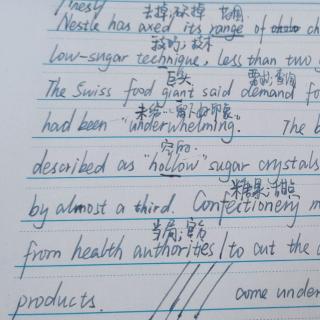 去掉，砍掉 范围
Nestle has axed its range of ch
技巧；技术
low-sugar technique, less than two
巨头 需求；查问
The Swiss food giant said demand fo
had been "underwhelming". The b
空的
described as "hollow" sugar crystals
糖果；甜点
by almost a third. Confectionery m
当局；官方
from health authorities / to cut the
products. come under